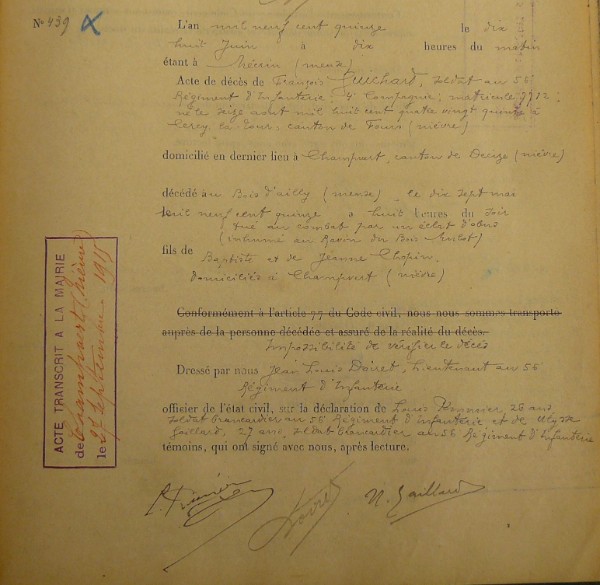 No 439
L'an mil neuf cent quinze le dix
huit Juin à dix heures du matin
étant à Mécrin (meuse)
Acte de décès de François Guichard, soldat au 56
Régiment d'Infanterie, 4e Compagnie, matricule 7712,
né le seize aout mil huit cent quatre vingt quinze à
Cercy la Tour, canton de Fours (nièvre)
domicilié en dernier lieu à Champvert, canton de Decize (nièvre)
décédé au Bois d'ailly (meuse) le dix sept mai
mil neuf cent quinze à huit heures du soir
tué au combat par un éclat d'obus
(inhumé au Ravin du Bois)
fils de Baptiste et de Jeanne Chopin,
domiciliés à Champvert (nièvre)
Conformément à l'article 77 du Code civil, nous nous sommes transporté
auprès de la personne décédée et assuré de la réalité du décès.
Impossibilité de vérifier le décès
Dressé par nous Jean Louis Doiret, Lieutenant au 56
Régiment d'Infanterie
officier de l'état civil, sur la déclaration de Louis 26 ans
soldat brancardier au 56 Régiment d'infanterie et de Ulysse
Gaillard, 27 ans, soldat brancardier au 56 Régiment d'Infanterie
témoins, qui ont signé avec nous, après lecture.
N. Gaillard
ACTE TRANSCRIT A LA MAIRIE
de Champvert (Nièvre)
le septembre 1915